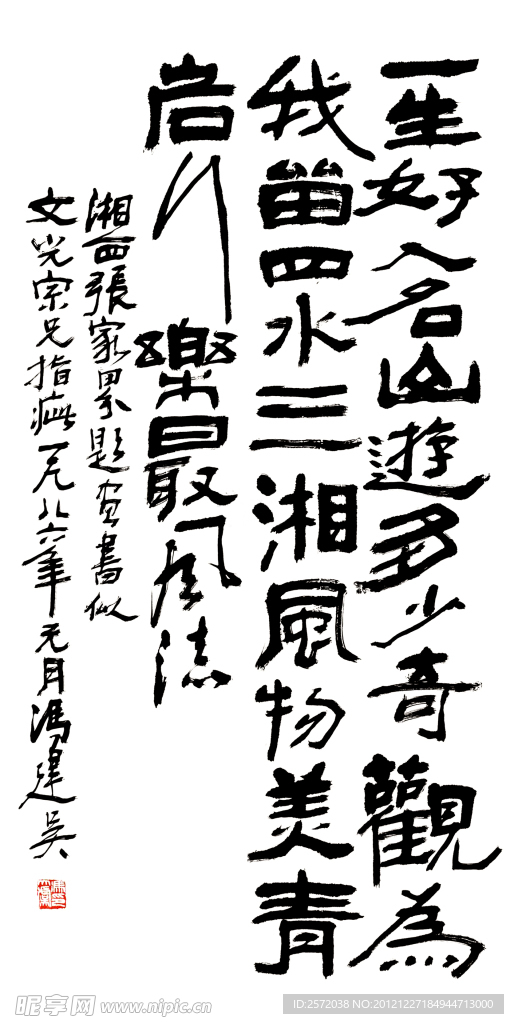 一生好入名山遊多少奇觀為
我留四水三湘風物美青
岩行樂最風流
湘西張家界題書似
文光宗兄指疵一九八六年元月馮建吳
昵享网 www.nipic.cn
ID:2572038 NO:20121227184944713000